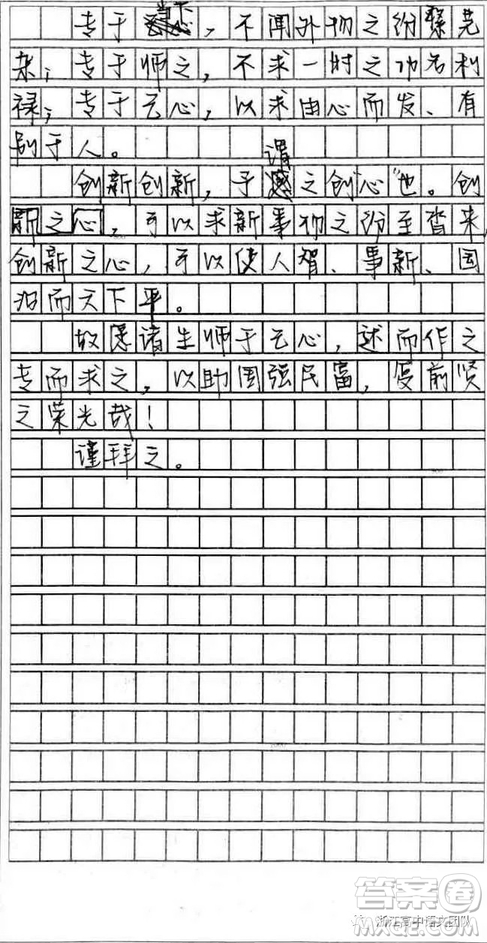 专于当下，不闻外物之纷繁芜
杂；专于师之，不求一时之功名利
禄；专于云心，以求由心而发、有
别于人。
创新创新，予谓之“创心”也。创
新之心，可以求新事物之纷至沓来，
创新之心，可以使人智、事新、国
治而天下平。
故愿诸生师于云心，述而作之
专而求之，以助国强民富，复前贤
之荣光哉！
谨拜之。
浙江高中语文团队
答案圈
MXQE.COM